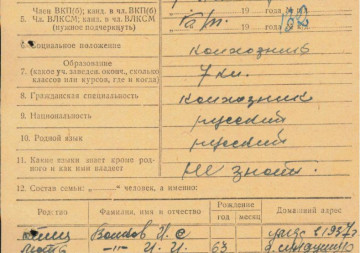 Член ВКП(б); канд. в чл. ВКП(б)
5. Чл. ВЛКСМ; канд. в чл. ВЛКСМ
(нужное подчеркнуть)
19 года
6. Социальное положение колхозник
Образование
7. (какое уч. заведен. оконч., сколько
классов или курсов, где и когда) 7 кл.
8. Гражданская специальность колхозник
9. Национальность русский
10. Родной язык русский
11. Какие языки знает кроме род-
ного и как ими владеет не знает.
12. Состав семьи: „——“ человек, а именно:
Родство Фамилия, имя и отчество Рождение Домашний адрес
год месяц
отец
мать -"- 63